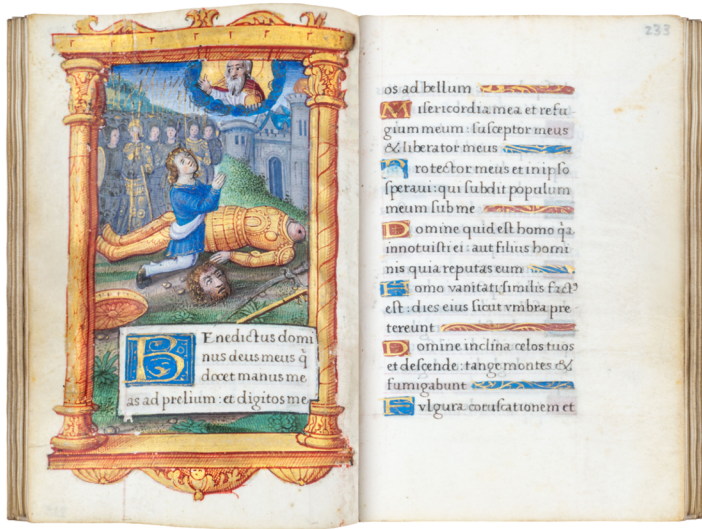 BEnedictus domi
nus deus meus q̃
docet manus me
as ad prelium : et digitos me
233
os ad bellum
Misericordia mea et refu
gium meum : susceptor meus
& liberator meus
Protector meus et in ipso
speraui : qui subdit populum
meum sub me
Domine quid est homo q̃a
innotuisti ei : aut filius homi
nis quia reputas eum
Homo vanitati similis factꝰ
est : dies eius sicut vmbra pre
tereunt
Domine inclina celos tuos
et descende : tange montes &
fumigabunt
Fulgura coruscationem et